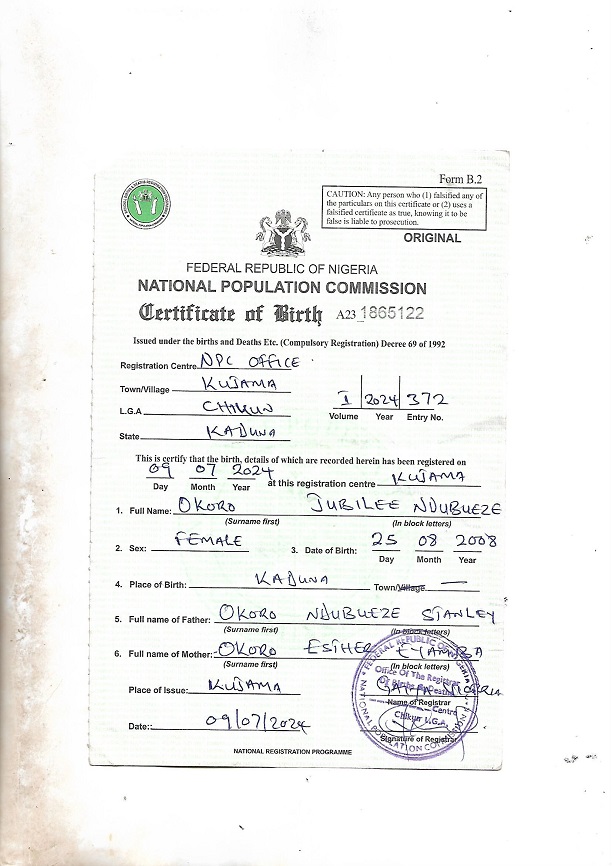 Form B.2
CAUTION: Any person who (1) falsified any of
the particulars on this certificate or (2) uses a
falsified certificate as true, knowing it to be
false is liable to prosecution.
ORIGINAL
FEDERAL REPUBLIC OF NIGERIA
NATIONAL POPULATION COMMISSION
Certificate of Birth A23 1865122
Issued under the births and Deaths Etc. (Compulsory Registration) Decree 69 of 1992
Registration Centre NPC OFFICE
Town/Village KUJAMA
I 2024 372
Volume Year Entry No.
L.G.A CHIKUN
State KADUNA
This is certify that the birth, details of which are recorded herein has been registered on
09 07 2024 at this registration centre KUJAMA
Day Month Year
1. Full Name: OKORO JUBILEE NDUBUEZE
(Surname first) (In block letters)
2. Sex: FEMALE 3. Date of Birth: 25 08 2008
Day Month Year
4. Place of Birth: KADUNA Town/Village —
5. Full name of Father: OKORO NDUBUEZE STANLEY
(Surname first) (In block letters)
6. Full name of Mother: OKORO ESTHER
(Surname first) (In block letters)
Place of Issue: KUJAMA
Name of Registrar
Date:: 09/07/2024
Signature of Registrar
NATIONAL REGISTRATION PROGRAMME
Office Of The Registrar
Chikun L.G.A.
NATIONAL POPULATION COMMISSION